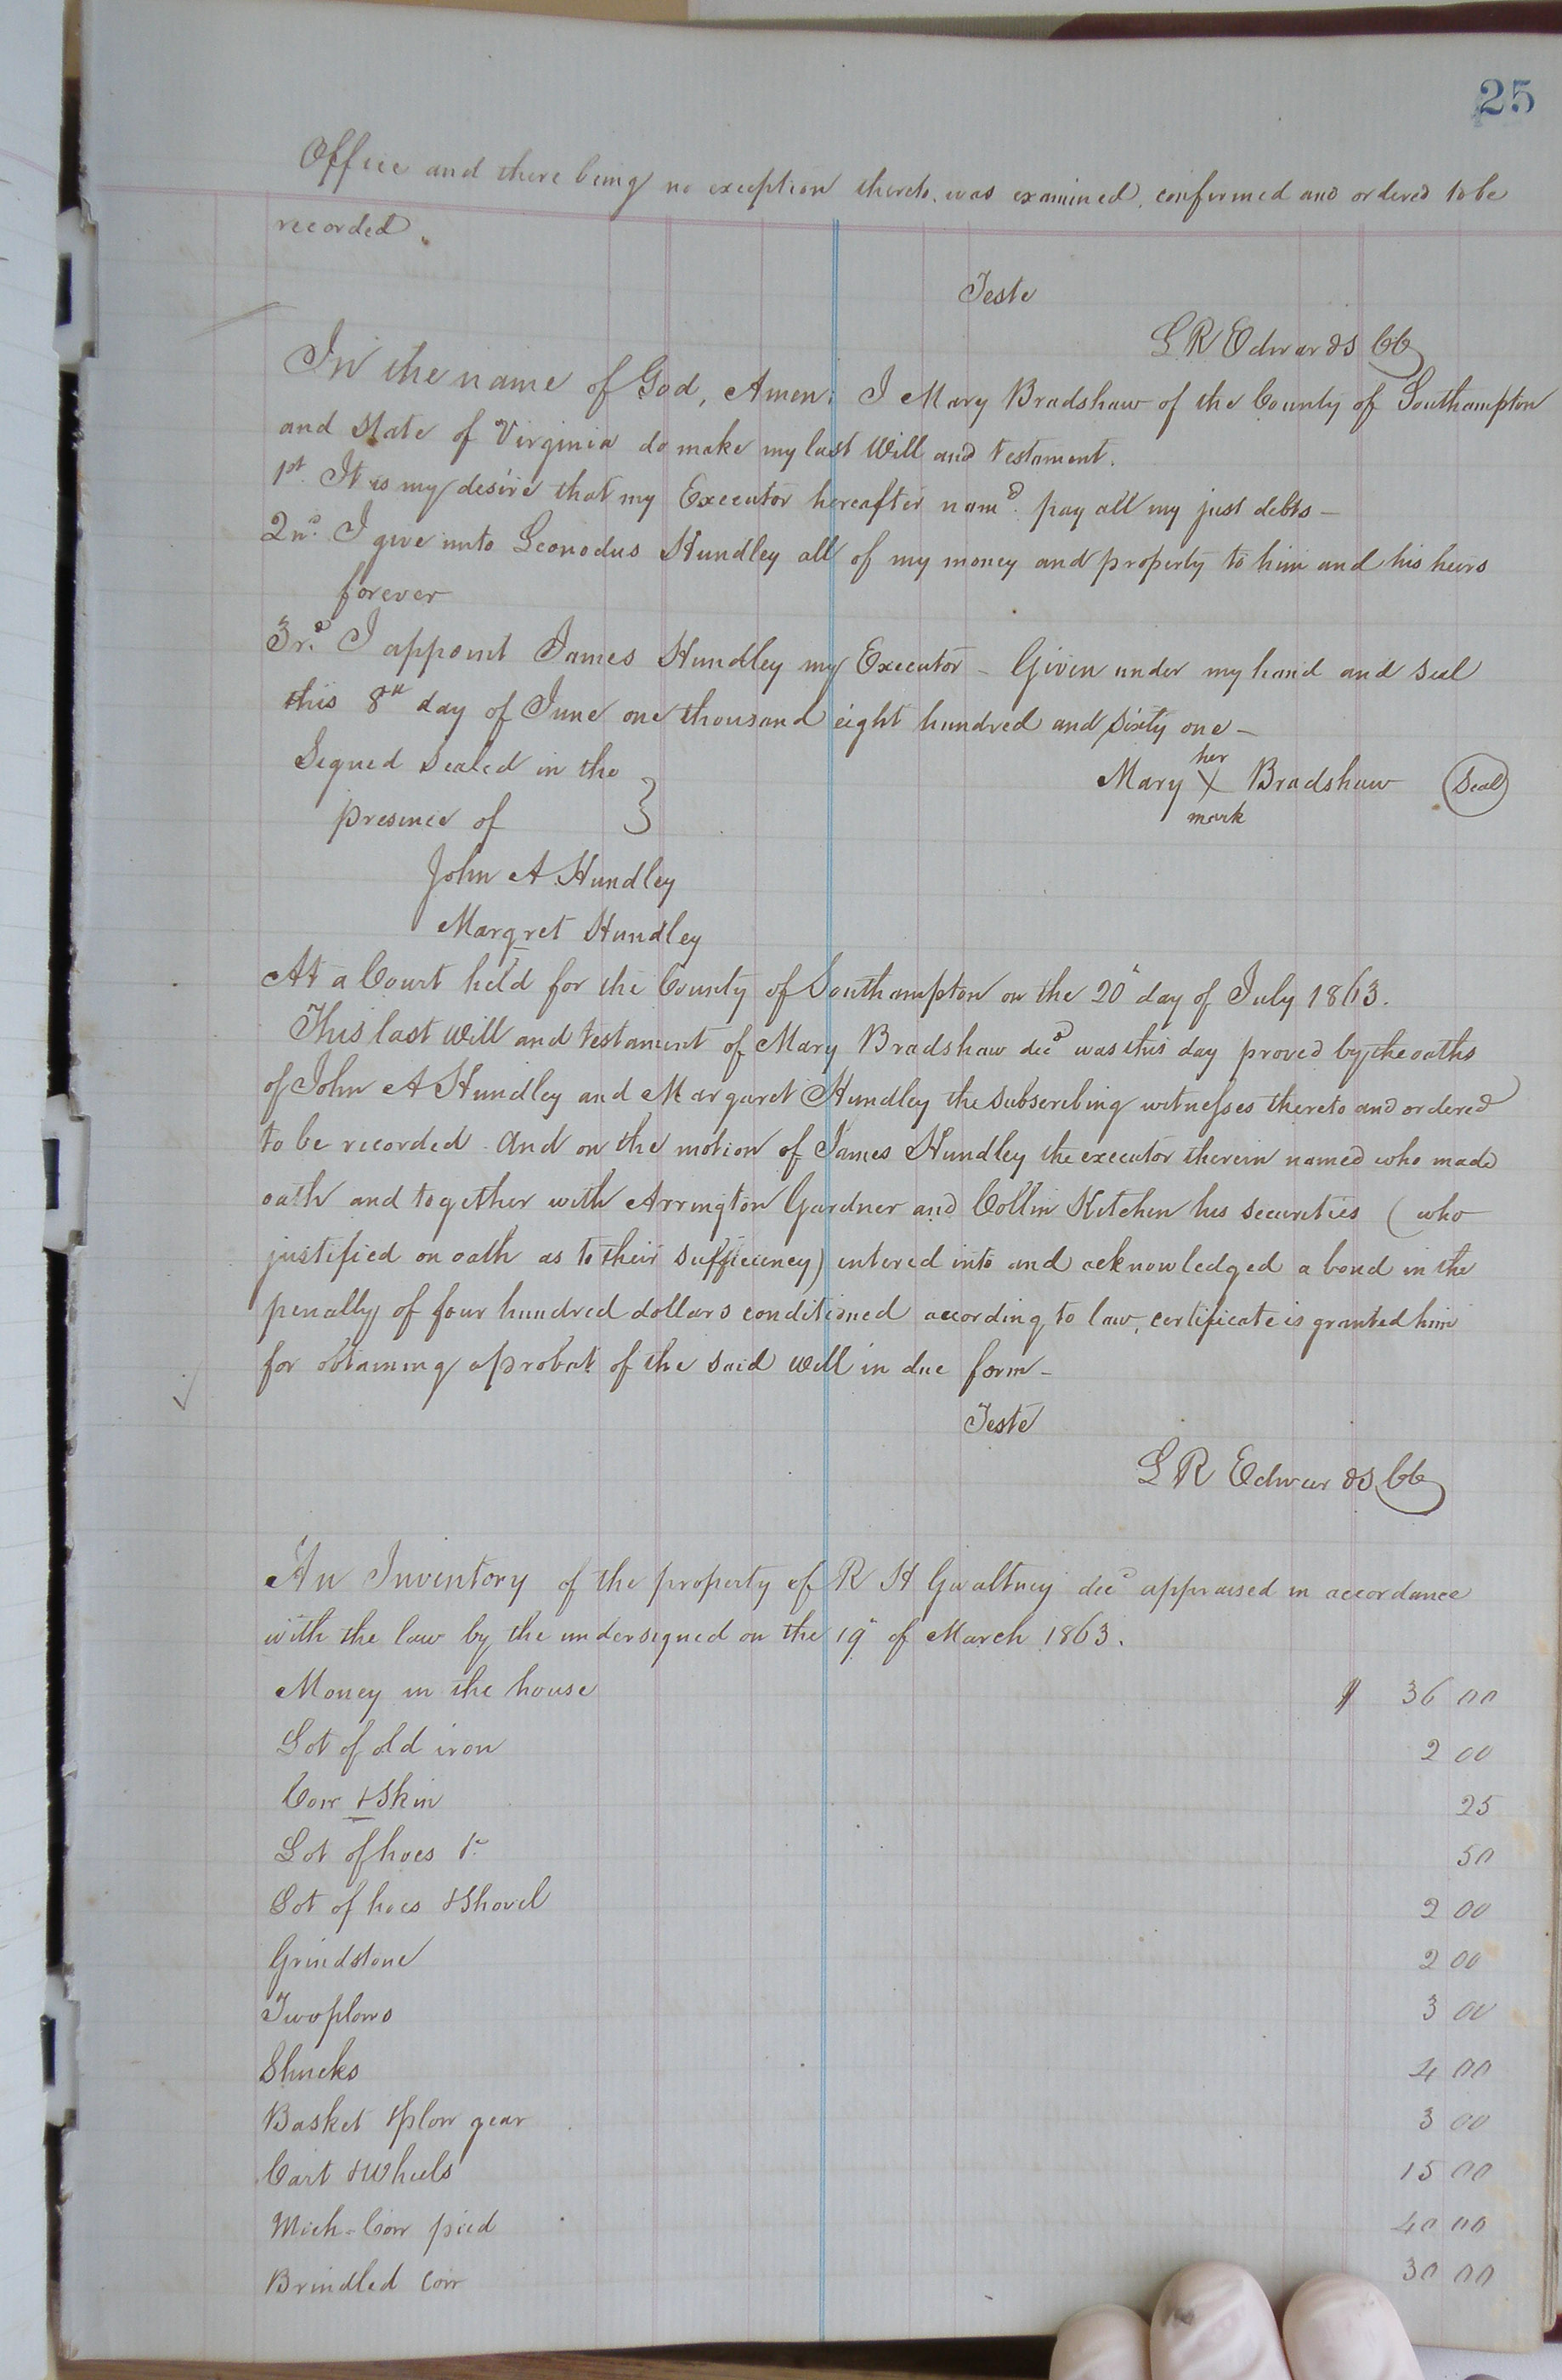 25
Office and there being no exception thereto, was examined, confirmed and ordered to be
recorded.
Teste
L R Edwards CC
In the name of God, Amen: I Mary Bradshaw of the County of Southampton
and State of Virginia do make my last Will and testament.
1st. It is my desire that my Executor hereafter namd. pay all my just debts –
2nd. I give unto Leonodus Hundley all of my money and property to him and his heirs
forever
3rd. I appoint James Hundley my Executor – Given under my hand and seal
this 8th day of June one thousand eight hundred and sixty one –
Signed Sealed in the }
her
Mary X Bradshaw (Seal)
presence of
mark
John A Hundley
Margret Hundley
At a Court held for the County of Southampton on the 20" day of July 1863.
This last Will and testament of Mary Bradshaw decd was this day proved by the oaths
of John A Hundley and Margaret Hundley the subscribing witnesses thereto and ordered
to be recorded. And on the motion of James Hundley the executor therein named who made
oath and together with Arrington Gardner and Collin Kitchen his securities (who
justified on oath as to their sufficiency) entered into and acknowledged a bond in the
penalty of four hundred dollars conditioned according to law, certificate is granted him
for obtaining a probat of the said Will in due form –
Teste
L R Edwards CC
An Inventory of the property of R H Gwaltney decd appraised in accordance
with the law by the undersigned on the 19" of March 1863.
Money in the house $ 36 00
Lot of old iron 2 00
Cow & Skin 25
Lot of hoes &c 50
Lot of hoes & Shovel 2 00
Grindstone 2 00
Two plows 3 00
Shucks 4 00
Basket & plow gear 3 00
Cart & Wheels 15 00
Cow pied 40 00
Brindled Cow 30 00